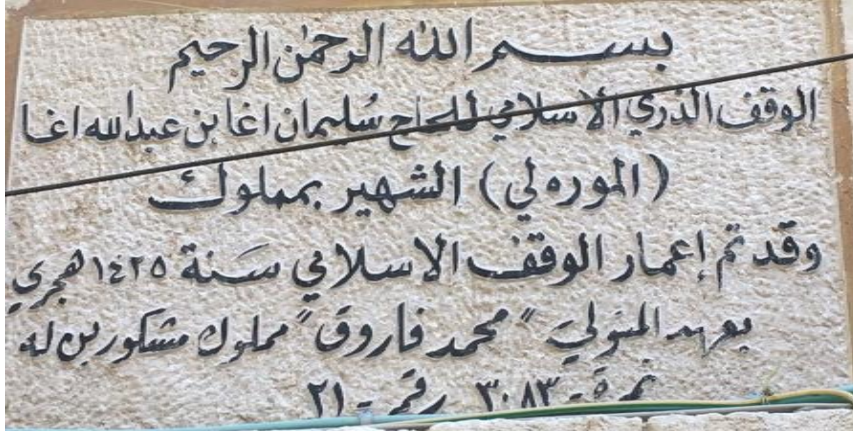 بسم الله الرحمن الرحيم
الوقف الذري الاسلامي للحاج سُليمان اغا بن عبدالله اغا
(الموره لي) الشهير بمملوك
وقد تم إعمار الوقف الاسلامي سَنة ١٤٢٥ هجري
بعهد المتولي "محمد فاروق" مملوك مشكورين له
نمرة - ٣٠٨٣ رقم - ٢١